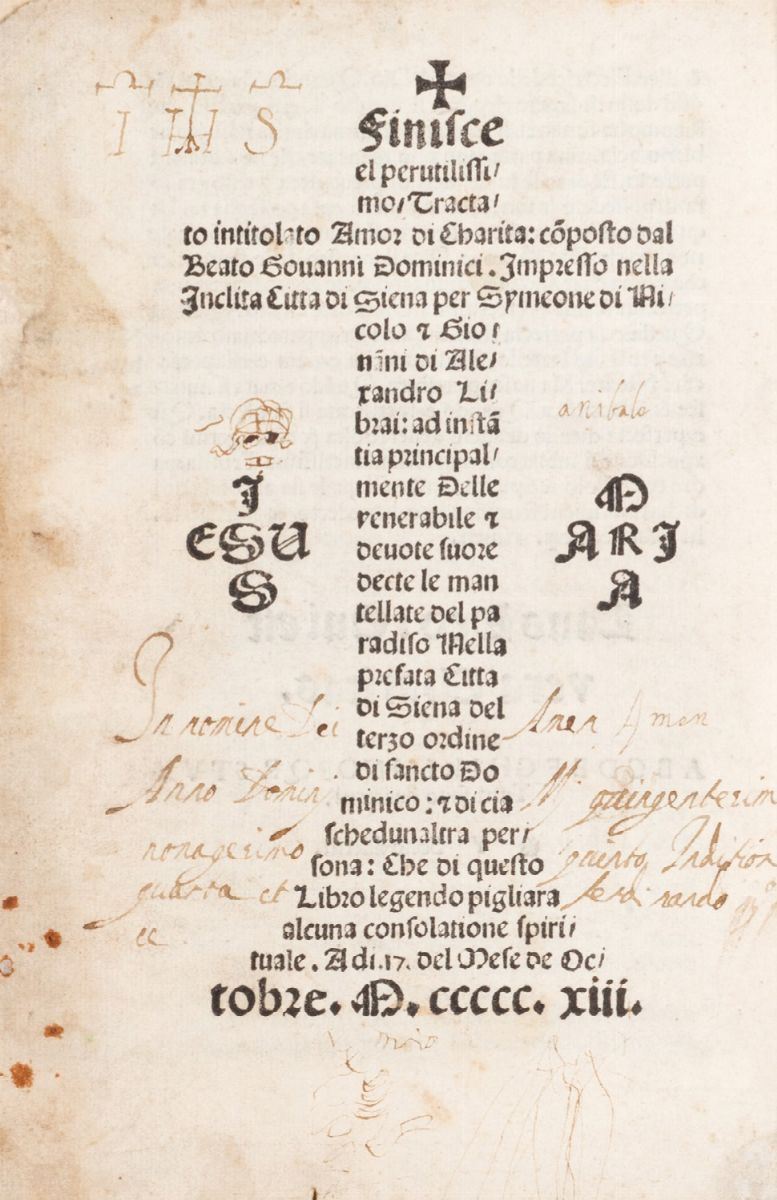 IHS
✠
Finisce
el perutilissi/
mo/ Tracta/
to intitolato Amor di Charita: cõposto dal
Beato Gouanni Dominici. Impresso nella
Inclita Citta di Siena per Symeone di Ni/
colo ⁊ Gio/
uãni di Ale/
xandro Li/
brai: ad instã
tia principal/
mente Delle
venerabile ⁊
deuote suore
decte le man
tellate del pa
radiso Nella
prefata Citta
di Siena del
terzo ordine
di sancto Do
minico: ⁊ di cia
schedunaltra per/
sona: Che di questo
Libro legendo pigliara
alcuna consolatione spiri/
tuale. Adi .17. del Mese de Oc/
tobre. M. ccccc. xiii.
J
ESU
S
anibale
M
ARI
A
In nomine Dei Amen Amen
Anno Domini M quingentesim
nonagesimo quinto Indition
quarta et ferdinando